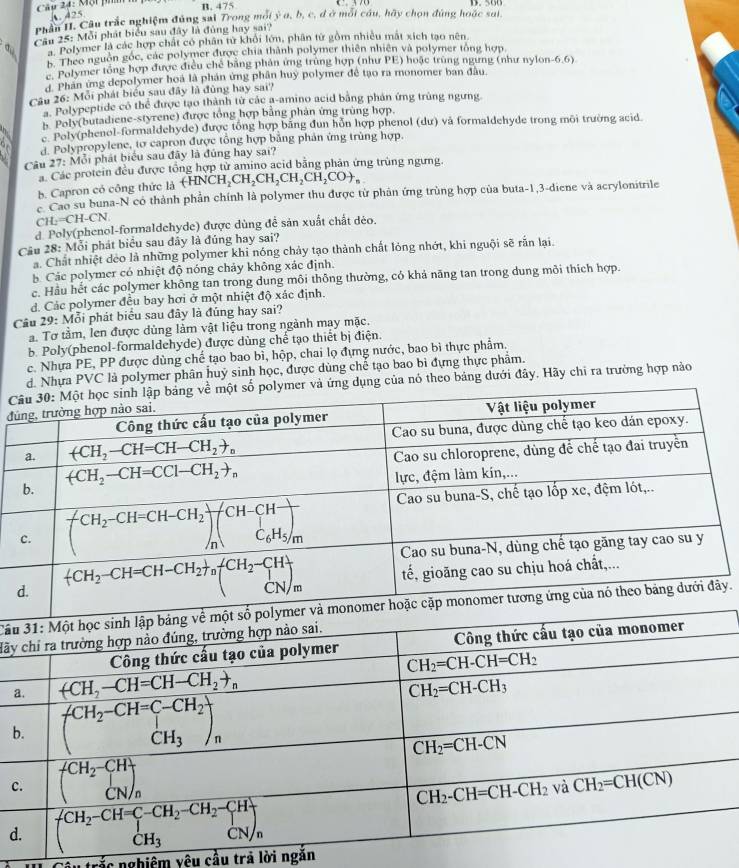 Câu 24:
A. 425. B. 475 C. 370 D. 500
Phần II. Câu trắc nghiệm đúng sai Trong mỗi ý a, b, c, d ở mỗi câu, hãy chọn đúng hoặc sai.
Câu 25: Mỗi phát biểu sau đây là đúng hay sai?
a. Polymer là các hợp chất có phân tử khối lớn, phân tử gồm nhiều mắt xích tạo nên.
b. Theo nguồn gốc, các polymer được chia thành polymer thiên nhiên và polymer tổng hợp.
c. Polymer tổng hợp được điều chế bằng phản ứng trùng hợp (như PE) hoặc trùng ngưng (như nylon-6,6)
d. Phản ứng depolymer hoá là phản ứng phân huỷ polymer để tạo ra monomer ban đầu.
Câu 26: Mỗi phát biểu sau đây là đúng hay sai?
a. Polypeptide có thể được tạo thành từ các a-amino acid bằng phản ứng trùng ngưng.
b. Poly(butadiene-styrene) được tổng hợp bằng phản ứng trùng hợp.
c. Poly(phenol-formaldehyde) được tổng hợp bằng đun hỗn hợp phenol (dư) và formaldehyde trong môi trường acid.
d. Polypropylene, tơ capron được tổng hợp bằng phản ứng trùng hợp.
Câu 27: Mỗi phát biểu sau đây là đúng hay sai?
a. Các protein đều được tổng hợp từ amino acid bằng phản ứng trùng ngưng.
b. Capron có công thức là (-HNCH₂CH₂CH₂CH₂CH₂CO-)ₙ.
c. Cao su buna-N có thành phần chính là polymer thu được từ phản ứng trùng hợp của buta-1,3-diene và acrylonitrile
CH₂=CH-CN.
d. Poly(phenol-formaldehyde) được dùng để sản xuất chất dẻo.
Câu 28: Mỗi phát biểu sau đây là đúng hay sai?
a. Chất nhiệt dẻo là những polymer khi nóng chảy tạo thành chất lỏng nhớt, khi nguội sẽ rắn lại.
b. Các polymer có nhiệt độ nóng chảy không xác định.
c. Hầu hết các polymer không tan trong dung môi thông thường, có khả năng tan trong dung môi thích hợp.
d. Các polymer đều bay hơi ở một nhiệt độ xác định.
Câu 29: Mỗi phát biểu sau đây là đúng hay sai?
a. Tơ tằm, len được dùng làm vật liệu trong ngành may mặc.
b. Poly(phenol-formaldehyde) được dùng chế tạo thiết bị điện.
c. Nhựa PE, PP được dùng chế tạo bao bì, hộp, chai lọ đựng nước, bao bì thực phẩm.
d. Nhựa PVC là polymer phân huỷ sinh học, được dùng chế tạo bao bì đựng thực phẩm.
Câu 30: Một học sinh lập bảng về một số polymer và ứng dụng của nó theo bảng dưới đây. Hãy chỉ ra trường hợp nào
đúng, trường hợp nào sai.
Công thức cấu tạo của polymer Vật liệu polymer
a. (-CH₂-CH=CH-CH₂-)ₙ Cao su buna, được dùng chế tạo keo dán epoxy.
b. (-CH₂-CH=CCl-CH₂-)ₙ Cao su chloroprene, dùng để chế tạo đai truyền
lực, đệm làm kín,...
c. (-CH₂-CH=CH-CH₂-)ₙ(-CH-CH-)ₘ Cao su buna-S, chế tạo lốp xe, đệm lót,..
C₆H₅
d. (-CH₂-CH=CH-CH₂-)ₙ(-CH₂-CH-)ₘ Cao su buna-N, dùng chế tạo găng tay cao su y
CN tế, gioăng cao su chịu hoá chất,...
Câu 31: Một học sinh lập bảng về một số polymer và monomer hoặc cặp monomer tương ứng của nó theo bảng dưới đây.
Hãy chỉ ra trường hợp nào đúng, trường hợp nào sai.
Công thức cấu tạo của polymer Công thức cấu tạo của monomer
a. (-CH₂-CH=CH-CH₂-)ₙ CH₂=CH-CH=CH₂
b. (-CH₂-CH=C-CH₂-)ₙ CH₂=CH-CH₃
CH₃
c. (-CH₂-CH-)ₙ CH₂=CH-CN
CN
d. (-CH₂-CH=C-CH₂-CH₂-CH-)ₙ CH₂-CH=CH-CH₂ và CH₂=CH(CN)
CH₃ CN
Câu trắc nghiệm yêu cầu trả lời ngắn